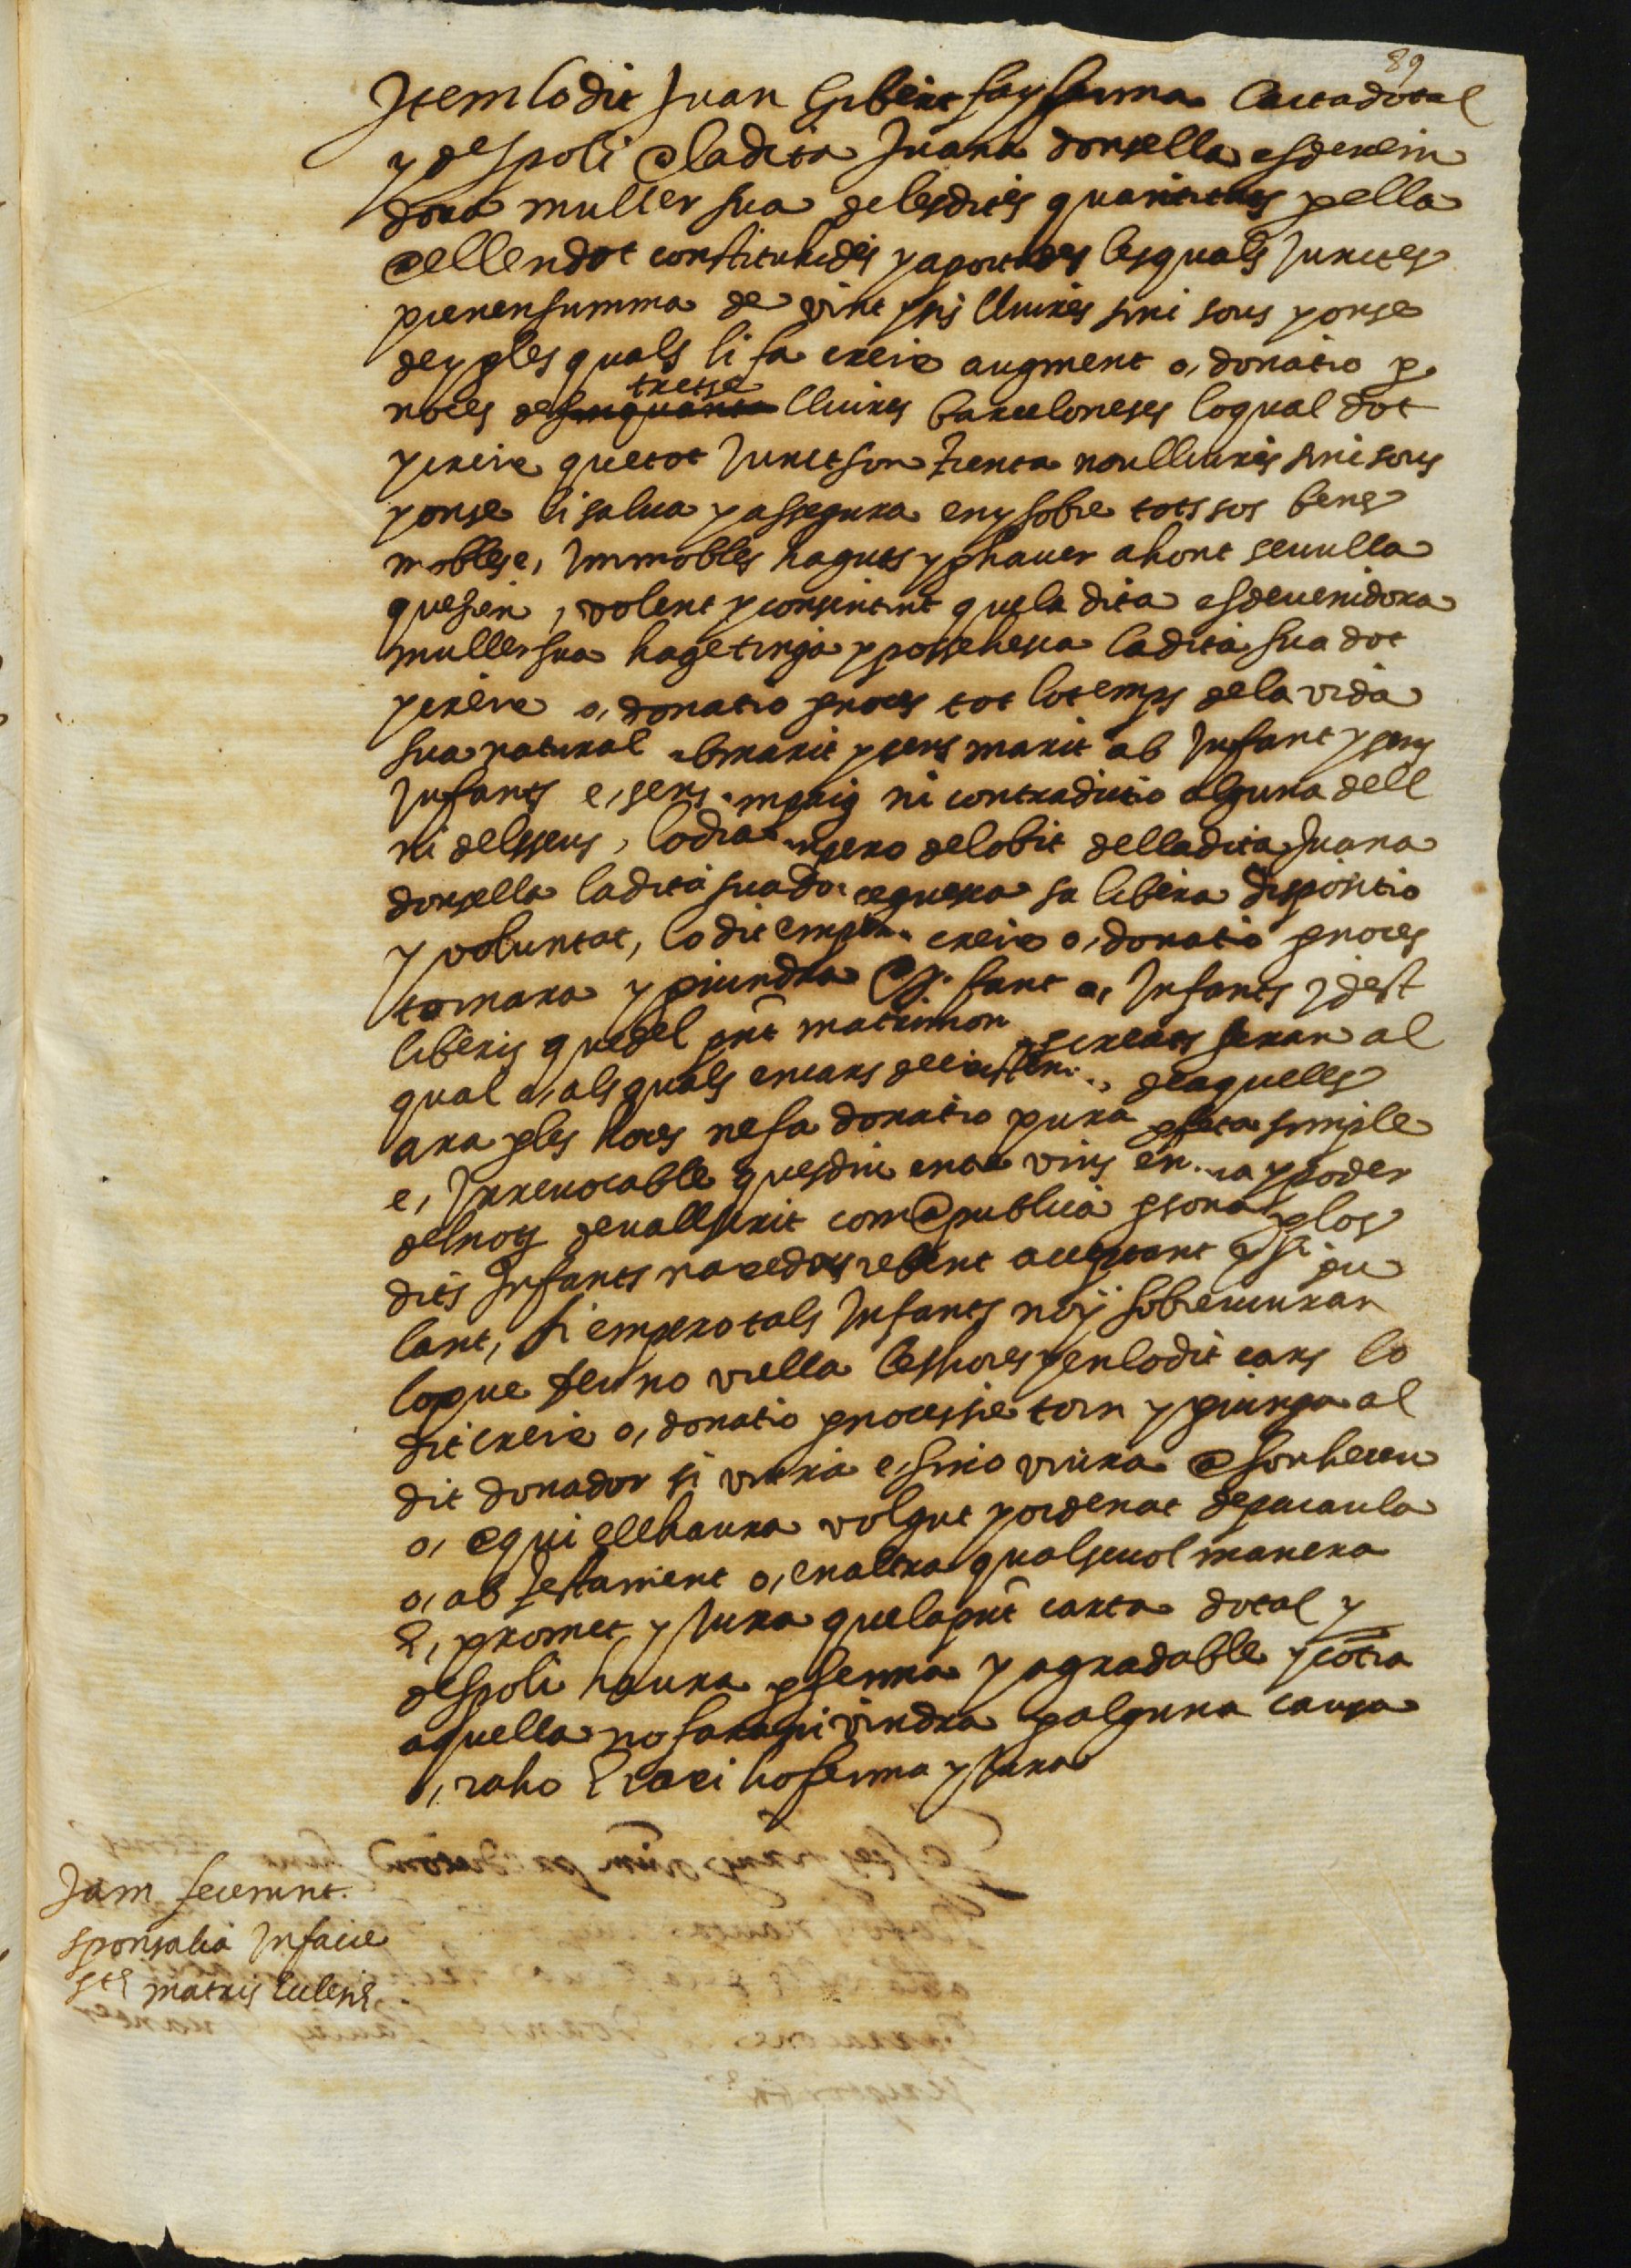 89
Item lo dit Juan Gibert fa y firma Carta dotal
y despoli a la dita Juana donsella esdeveni
dora muller sua de les dites quantitats p ella
a ell en dot constituhides y aportades les quals Junctes
prenen summa de vint y sis lliures sinc sous y onse
de y p les quals li fa creix augment o, donatio p
noces de sinquanta tretse lliures barceloneses lo qual dot
y creix que tot Junct son trenta nou lliures sinc sous
y onse li salva y assegura en y sobre tots sos bens
mobles e, Immobles haguts y p haver ahont sevulla
que sien, volent y consentint que la dita esdevenidora
muller sua hage tinga y possehesca la dita sua dot
y creix o, donatio p noces tot lo temps de la vida
sua natural ab marit y sens marit ab Infant y sens
Infants e, sens empaig ni contradictio alguna dell
ni dels seus, lo dia empero del obit de la dita Juana
donsella la dita sua dot seguesca sa libera dispositio
y voluntat, lo dit empero creix o, donatio p noces
tornara y pervindra al Infant o, Infants idest
liberis que del pnt matrimoni procreats seran al
qual o, als quals en cars de existencia de aquells
ara p les hores ne fa donatio pura pfeta simple
e, Irrevocable ques diu entre vius en ma y poder
del not devall scrit com a publica psona p los
dits Infants naxedors rebent acceptant e stipu
lant, si empero tals Infants noy sobreviuran
lo que deu no vulla les hores y en lo dit cars lo
dit creix o, donatio p noces sie torn y pvinga al
dit donador si viura e, si no viura a son hereu
o, a qui ell haura volgut y ordenat de paraula
o, ab testament o, en altra qualsevol manera
E, promet y Jura que la pnt carta dotal y
despoli haura p ferma y agradable y cotra
aquella no fara ni vindra p alguna causa
o, raho E axi ho ferma y Jura
Jam fecerunt
sponsalia In facie
ste matris Ecclesie